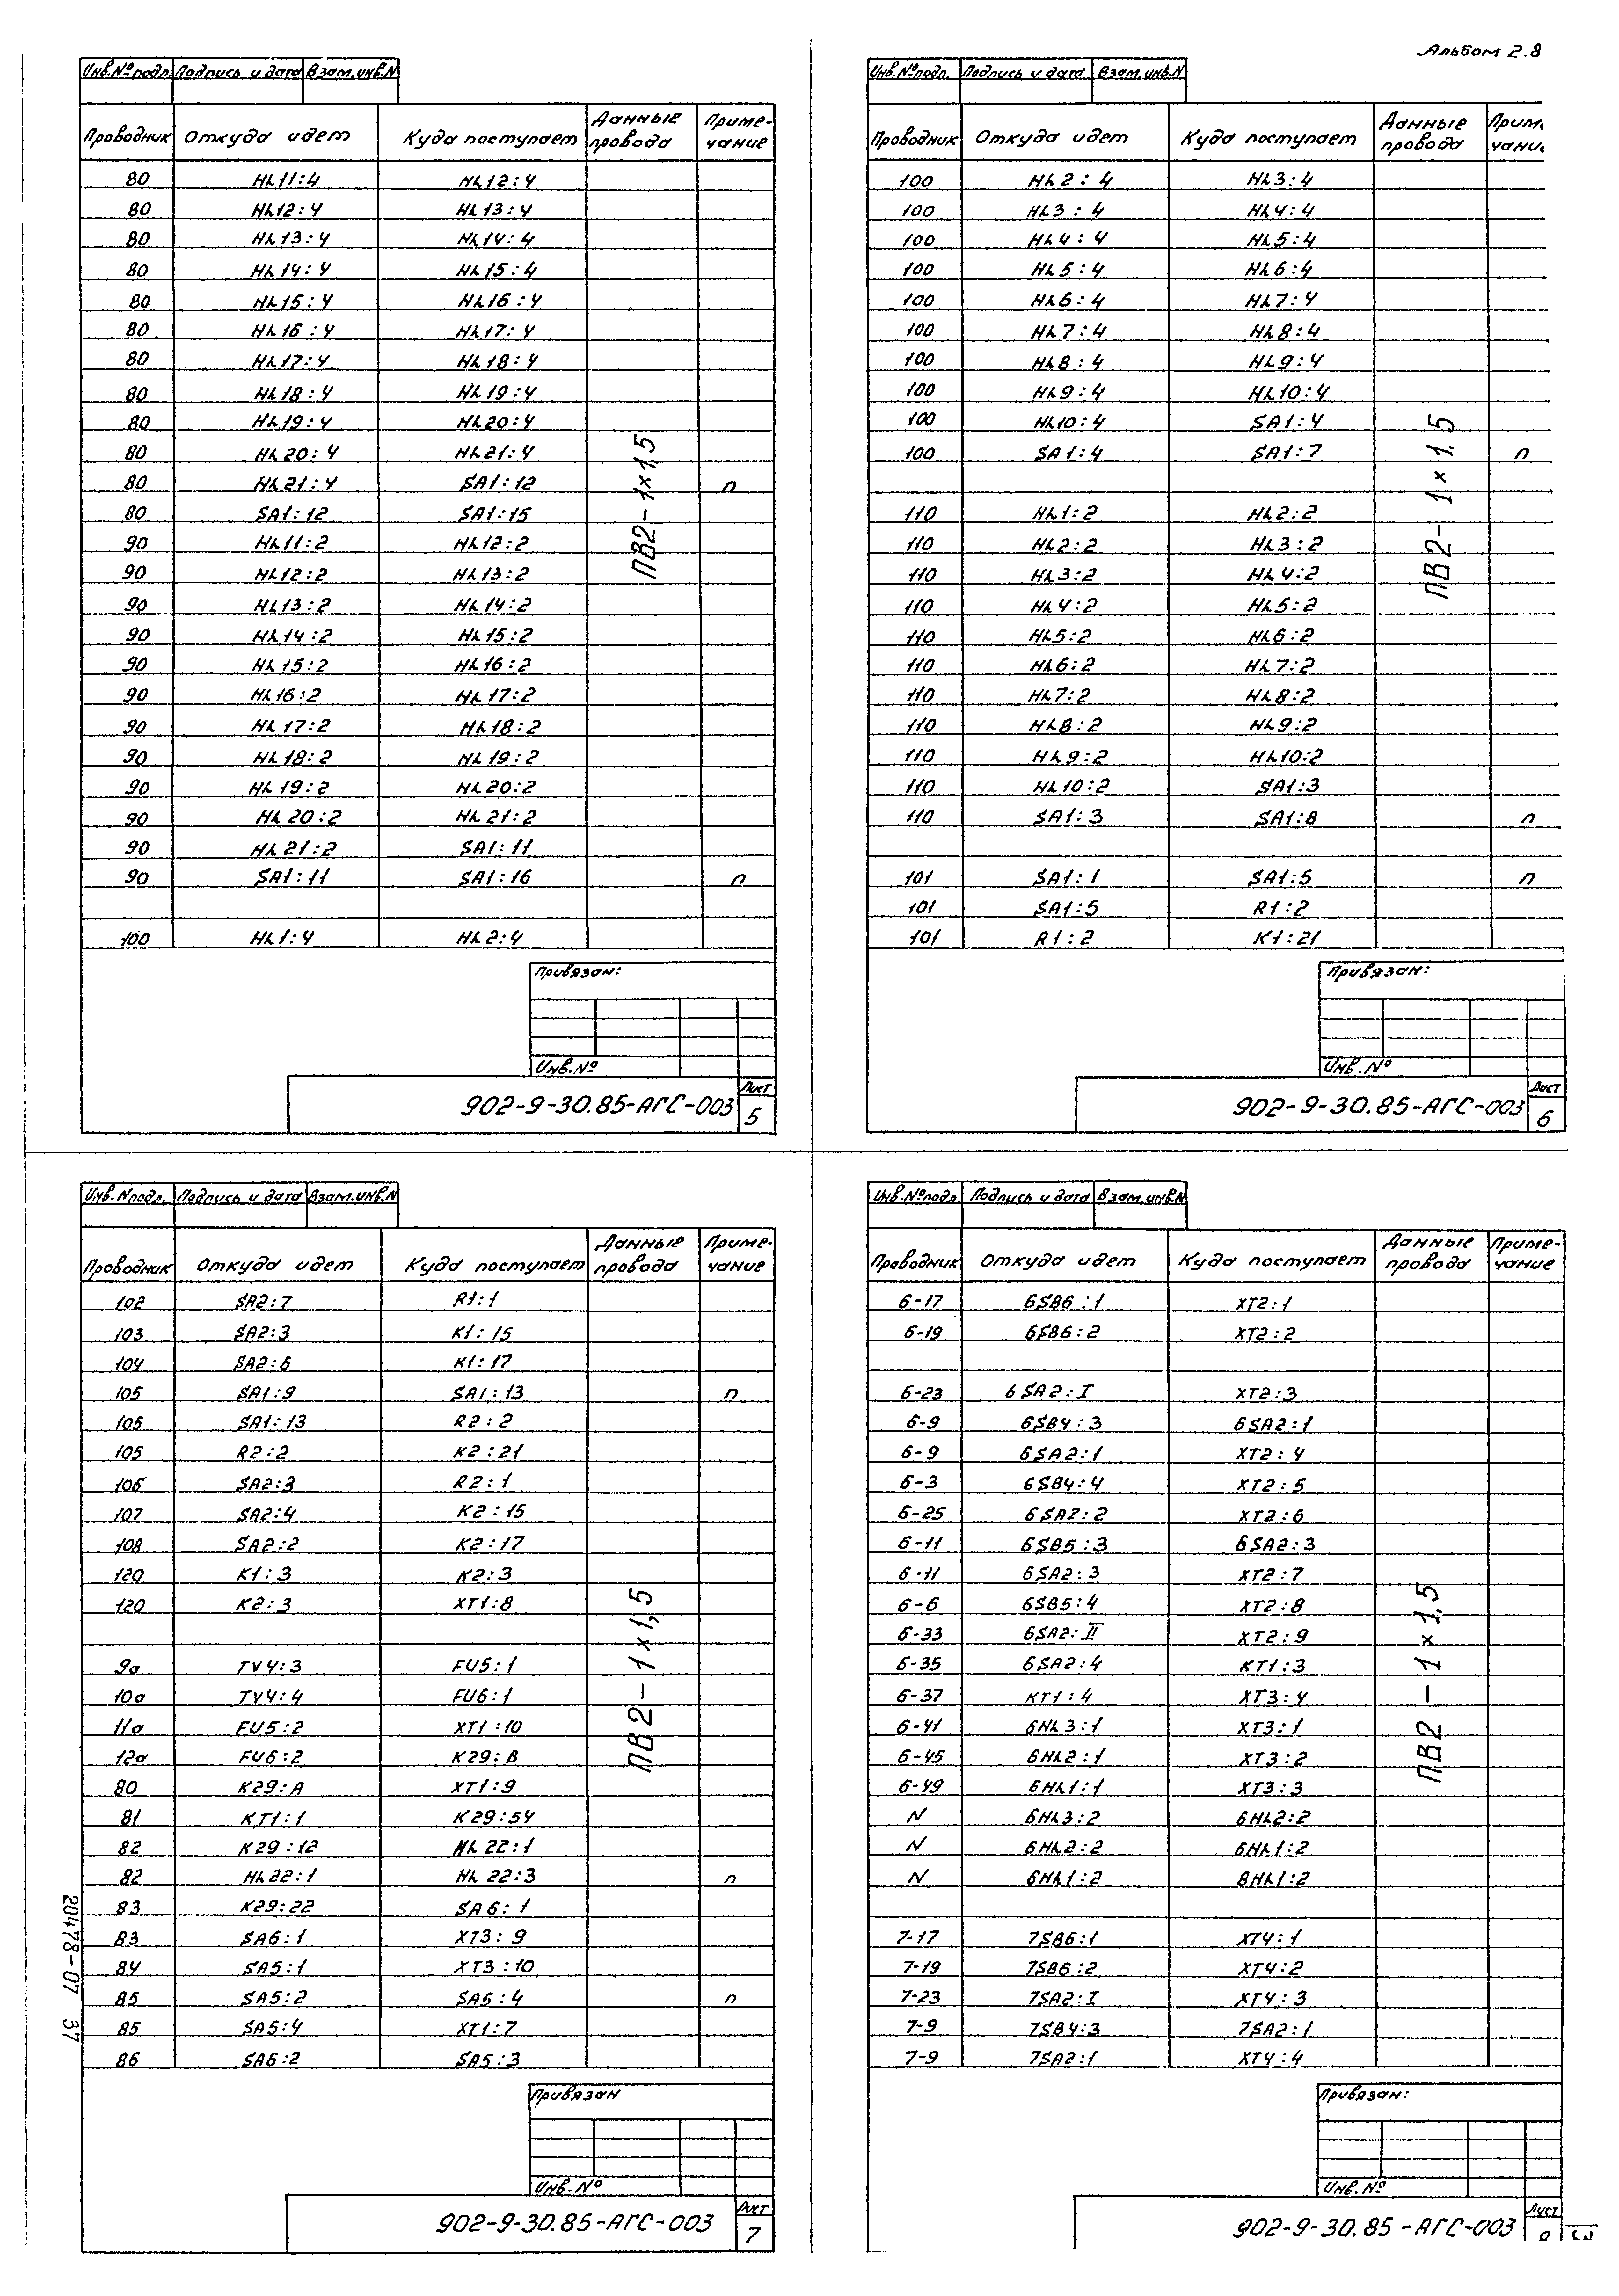 Альбом 2.8
Инв.№ подл. Подпись и дата Взам.инв.N
Проводник Откуда идет Куда поступает Данные провода Приме-чание
80 HL11:4 HL12:4
80 HL12:4 HL13:4
80 HL13:4 HL14:4
80 HL14:4 HL15:4
80 HL15:4 HL16:4
80 HL16:4 HL17:4
80 HL17:4 HL18:4
80 HL18:4 HL19:4
80 HL19:4 HL20:4
80 HL20:4 HL21:4
80 HL21:4 SA1:12 п
80 SA1:12 SA1:15
90 HL11:2 HL12:2
90 HL12:2 HL13:2
90 HL13:2 HL14:2
90 HL14:2 HL15:2
90 HL15:2 HL16:2
90 HL16:2 HL17:2
90 HL17:2 HL18:2
90 HL18:2 HL19:2
90 HL19:2 HL20:2
90 HL20:2 HL21:2
90 HL21:2 SA1:11
90 SA1:11 SA1:16 п
100 HL1:4 HL2:4
ПВ2-1×1,5
Привязан:
Инв.№
902-9-30.85-АГС-003
Лист
5
Инв.№ подл. Подпись и дата Взам.инв.N
Проводник Откуда идет Куда поступает Данные провода Прим чани
100 HL2:4 HL3:4
100 HL3:4 HL4:4
100 HL4:4 HL5:4
100 HL5:4 HL6:4
100 HL6:4 HL7:4
100 HL7:4 HL8:4
100 HL8:4 HL9:4
100 HL9:4 HL10:4
100 HL10:4 SA1:4
100 SA1:4 SA1:7 п
110 HL1:2 HL2:2
110 HL2:2 HL3:2
110 HL3:2 HL4:2
110 HL4:2 HL5:2
110 HL5:2 HL6:2
110 HL6:2 HL7:2
110 HL7:2 HL8:2
110 HL8:2 HL9:2
110 HL9:2 HL10:2
110 HL10:2 SA1:3
110 SA1:3 SA1:8 п
101 SA1:1 SA1:5 п
101 SA1:5 R1:2
101 R1:2 K1:21
ПВ2-1×1,5
Привязан:
Инв.№
902-9-30.85-АГС-003
Лист
6
Инв.N подл. Подпись и дата Взам.инв.N
Проводник Откуда идет Куда поступает Данные провода Приме-чание
102 SA2:7 R1:1
103 SA2:3 K1:15
104 SA2:6 K1:17
105 SA1:9 SA1:13 п
105 SA1:13 R2:2
105 R2:2 K2:21
106 SA2:3 R2:1
107 SA2:4 K2:15
108 SA2:2 K2:17
120 K1:3 K2:3
120 K2:3 XT1:8
9а TV4:3 FU5:1
10а TV4:4 FU6:1
11а FU5:2 XT1:10
12а FU6:2 K29:B
80 K29:A XT1:9
81 KT1:1 K29:54
82 K29:12 HL22:1
82 HL22:1 HL22:3 п
83 K29:22 SA6:1
83 SA6:1 XT3:9
84 SA5:1 XT3:10
85 SA5:2 SA5:4 п
85 SA5:4 XT1:7
86 SA6:2 SA5:3
ПВ2-1×1,5
20478-07 37
Привязан
Инв.№
902-9-30.85-АГС-003
Лист
7
Инв.№ подл. Подпись и дата Взам.инв.N
Проводник Откуда идет Куда поступает Данные провода Приме-чание
6-17 6SB6:1 XT2:1
6-19 6SB6:2 XT2:2
6-23 6SA2:I XT2:3
6-9 6SB4:3 6SA2:1
6-9 6SA2:1 XT2:4
6-3 6SB4:4 XT2:5
6-25 6SA2:2 XT2:6
6-11 6SB5:3 6SA2:3
6-11 6SA2:3 XT2:7
6-6 6SB5:4 XT2:8
6-33 6SA2:II XT2:9
6-35 6SA2:4 KT1:3
6-37 KT1:4 XT3:4
6-41 6HL3:1 XT3:1
6-45 6HL2:1 XT3:2
6-49 6HL1:1 XT3:3
N 6HL3:2 6HL2:2
N 6HL2:2 6HL1:2
N 6HL1:2 8HL1:2
7-17 7SB6:1 XT4:1
7-19 7SB6:2 XT4:2
7-23 7SA2:I XT4:3
7-9 7SB4:3 7SA2:1
7-9 7SA2:1 XT4:4
ПВ2-1×1,5
Привязан:
Инв.№
902-9-30.85-АГС-003
Лист